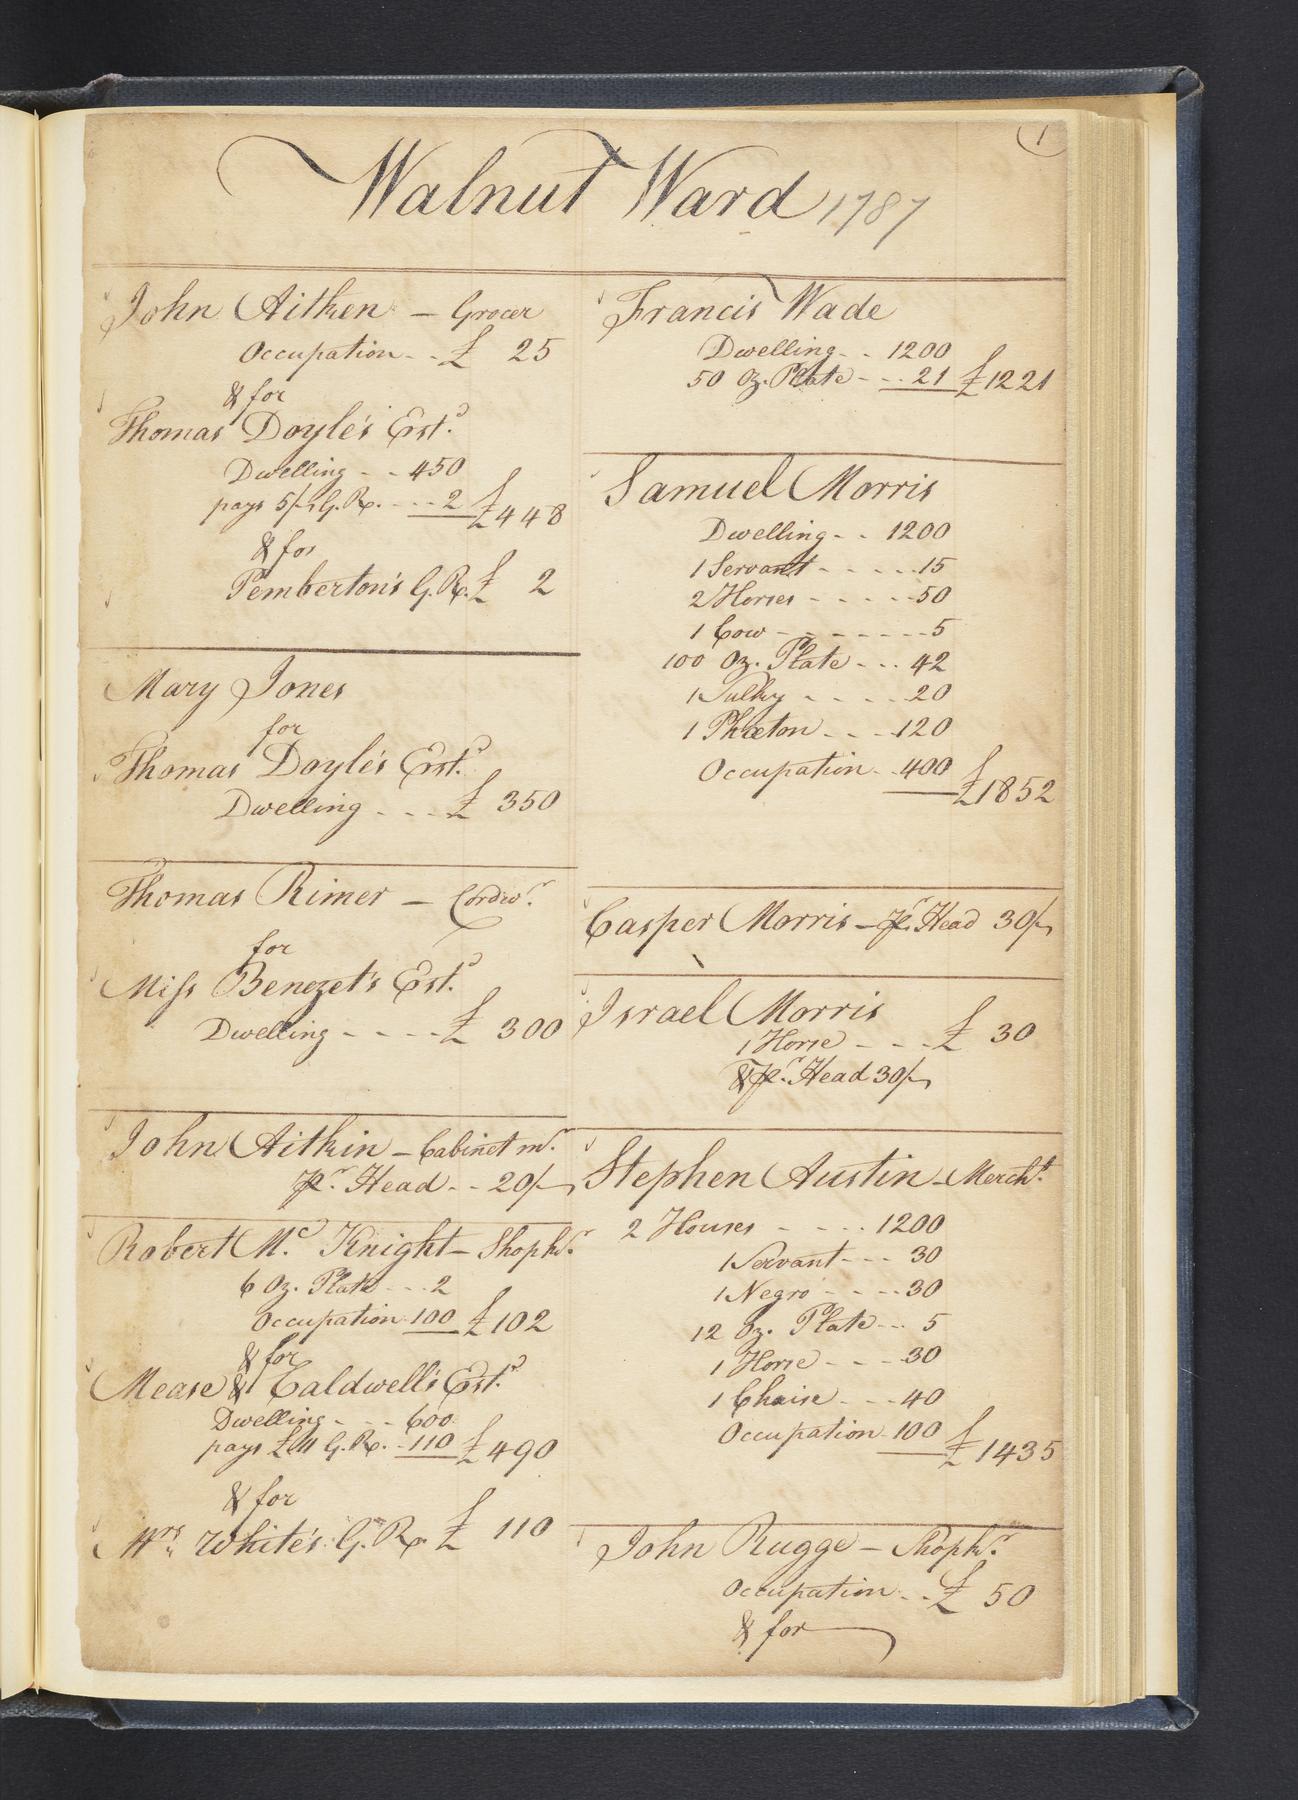 1
Walnut Ward 1787
John Aitken – Grocer
Occupation - - £ 25
& for
Thomas Doyle's Estd.
Dwelling - - 450
pays 5/- G. R. - - - 2 £448
& for
Pemberton's G. R. £ 2
Mary Jones
for
Thomas Doyle's Estd.
Dwelling - - - £ 350
Thomas Rimer – Cordwr.
for
Miss Benezet's Estd.
Dwelling - - - - £ 300
John Aitkin – Cabinet mr.
pr. Head - - 20/-
Robert Mc. Knight – Shopkr.
6 Oz. Plate - - - 2
Occupation 100 £102
& for
Mease & Caldwell's Estd.
Dwelling - - - 600
pays £11 G. R. - 110 £490
& for
Mrs. White's G. R. £ 110
Francis Wade
Dwelling - - 1200
50 Oz. Plate - - - 21 £1221
Samuel Morris
Dwelling - - 1200
1 Servant - - - - - 15
2 Horses - - - - - 50
1 Cow - - - - - - - - 5
100 Oz. Plate - - - 42
1 Sulky - - - - - 20
1 Phæton - - - - 120
Occupation - - 400 £1852
Casper Morris – pr. Head 30/-
Israel Morris
1 Horse - - - £ 30
& pr. Head 30/-
Stephen Austin – Mercht.
2 Houses - - - - 1200
1 Servant - - - 30
1 Negro - - - - 30
12 Oz. Plate - - - 5
1 Horse - - - 30
1 Chaise - - - - 40
Occupation - 100 £1435
John Rugge – Shopkr.
Occupation - - £ 50
& for